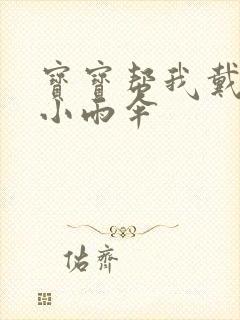 寶寶幫我戴
小雨伞
佑齊